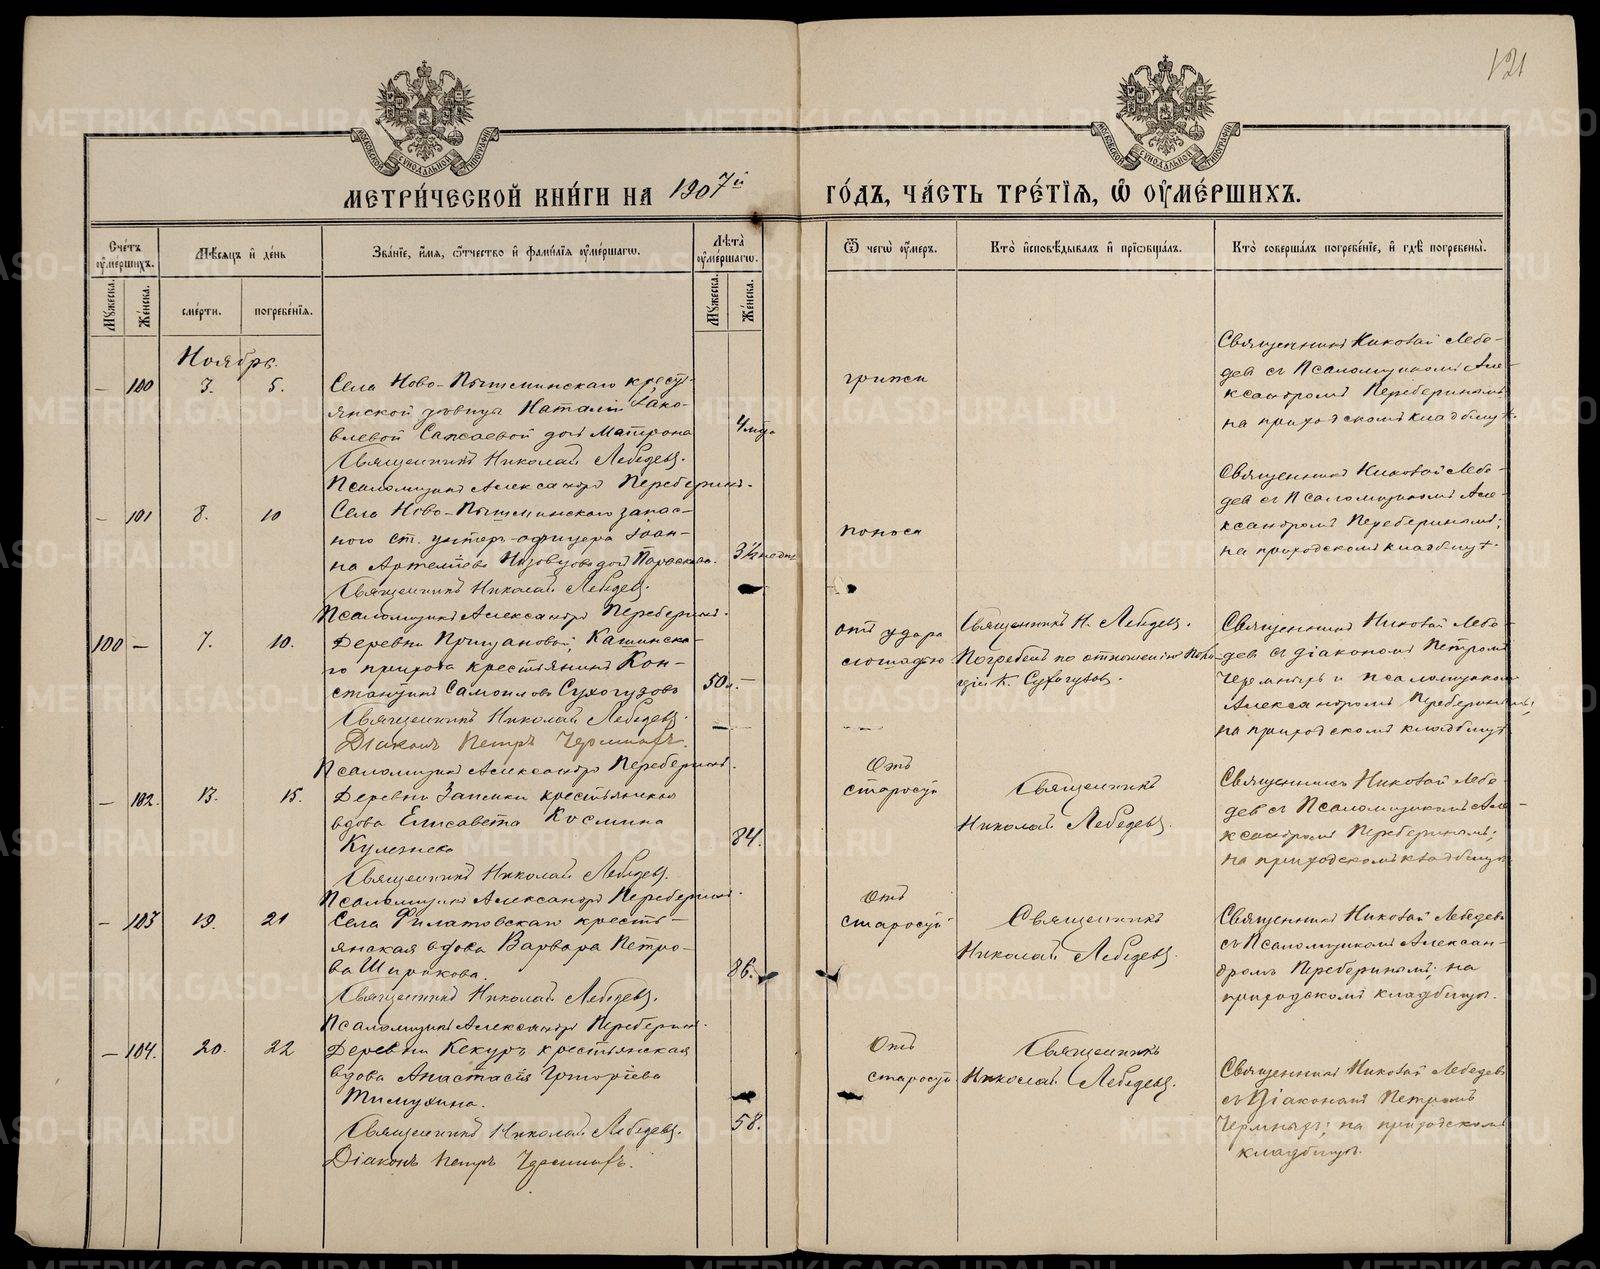 121
МЕТРИ́ЧЕСКОЙ КНИ́ГИ НА 1907й ГО́ДЪ, ЧА́СТЬ ТРЕ́ТЇѦ, Ѡ҆ ОУ҆МЕ́РШИХЪ.
Сче́тъ оу҆ме́ршихъ.
Мѣ́сяцъ и҆ де́нь
Зва́нїе, и҆́мя, ѻ҆́тчество и҆ фами́лїя оу҆ме́ршагѡ.
Лѣ́та оу҆ме́ршагѡ.
Ѿ чегѡ̀ оу҆́меръ.
Кто̀ и҆сповѣ́дывалъ и҆ прїѡбща́лъ.
Кто̀ соверша́лъ погребе́нїе, и҆ гдѣ̀ погребены̀.
Мꙋжеска.
Же́нска.
сме́рти.
погребе́нїя.
Мꙋжеска.
Же́нска.
Ноябрь.
— 100 3. 5.
Села Ново-Пышминскаго кресть-
янской дѣвицы Наталіи Іако-
влевой дочь Матрона
Священникъ Николай Лебедевъ.
Псаломщикъ Александръ Переберинъ.
грыжи
Священникъ Николай Лебе-
девъ съ Псаломщикомъ Але-
ксандромъ Переберинымъ
на приходскомъ кладбищѣ.
— 101 8. 10
Села Ново-Пышминскаго запас-
ного ст. унтеръ-офицера Іоан-
на Артеміева дочь Параскева.
3½ недѣл.
Священникъ Николай Лебедевъ.
Псаломщикъ Александръ Переберинъ.
поноса
Священникъ Николай Лебе-
девъ съ Псаломщикомъ Але-
ксандромъ Переберинымъ;
на приходскомъ кладбищѣ.
100 — 7. 10.
Деревни Прищановой, Кашинска-
го прихода крестьянинъ Кон-
стантинъ Самоиловъ Сухогузовъ
50 л. —
Священникъ Николай Лебедевъ.
Діаконъ Петръ
Псаломщикъ Александръ Переберинъ.
отъ удара
лошадью
Священникъ Н. Лебедевъ.
Погребенъ по отношенію
Священникъ Николай Лебе-
девъ съ діакономъ Петромъ
и псаломщикомъ
Александромъ Переберинымъ;
на приходскомъ кладбищѣ
— 102. 13. 15.
Деревни Заимки крестьянская
вдова Елисавета Космина
84.
Священникъ Николай Лебедевъ.
Псаломщикъ Александръ Переберинъ.
Отъ
старости
Священникъ
Николай Лебедевъ.
Священникъ Николай Лебе-
девъ съ Псаломщикомъ Але-
ксандромъ Переберинымъ;
на приходскомъ кладбищѣ
— 103 19. 21
Села Филатовскаго кресть-
янская вдова Варвара Петро-
ва Широкова.
86.
Священникъ Николай Лебедевъ.
Псаломщикъ Александръ Переберинъ.
Отъ
старости
Священникъ
Николай Лебедевъ.
Священникъ Николай Лебедевъ
съ Псаломщикомъ Алексан-
дромъ Переберинымъ; на
приходскомъ кладбищѣ.
— 104. 20. 22
Деревни Кекуръ крестьянская
вдова Анастасія Григоріева
Тимухина.
58.
Священникъ Николай Лебедевъ.
Діаконъ Петръ
Отъ
старости
Священникъ
Николай Лебедевъ.
Священникъ Николай Лебедевъ
съ Діакономъ Петромъ
на приходскомъ
кладбищѣ.
METRIKI.GASO-URAL.RU